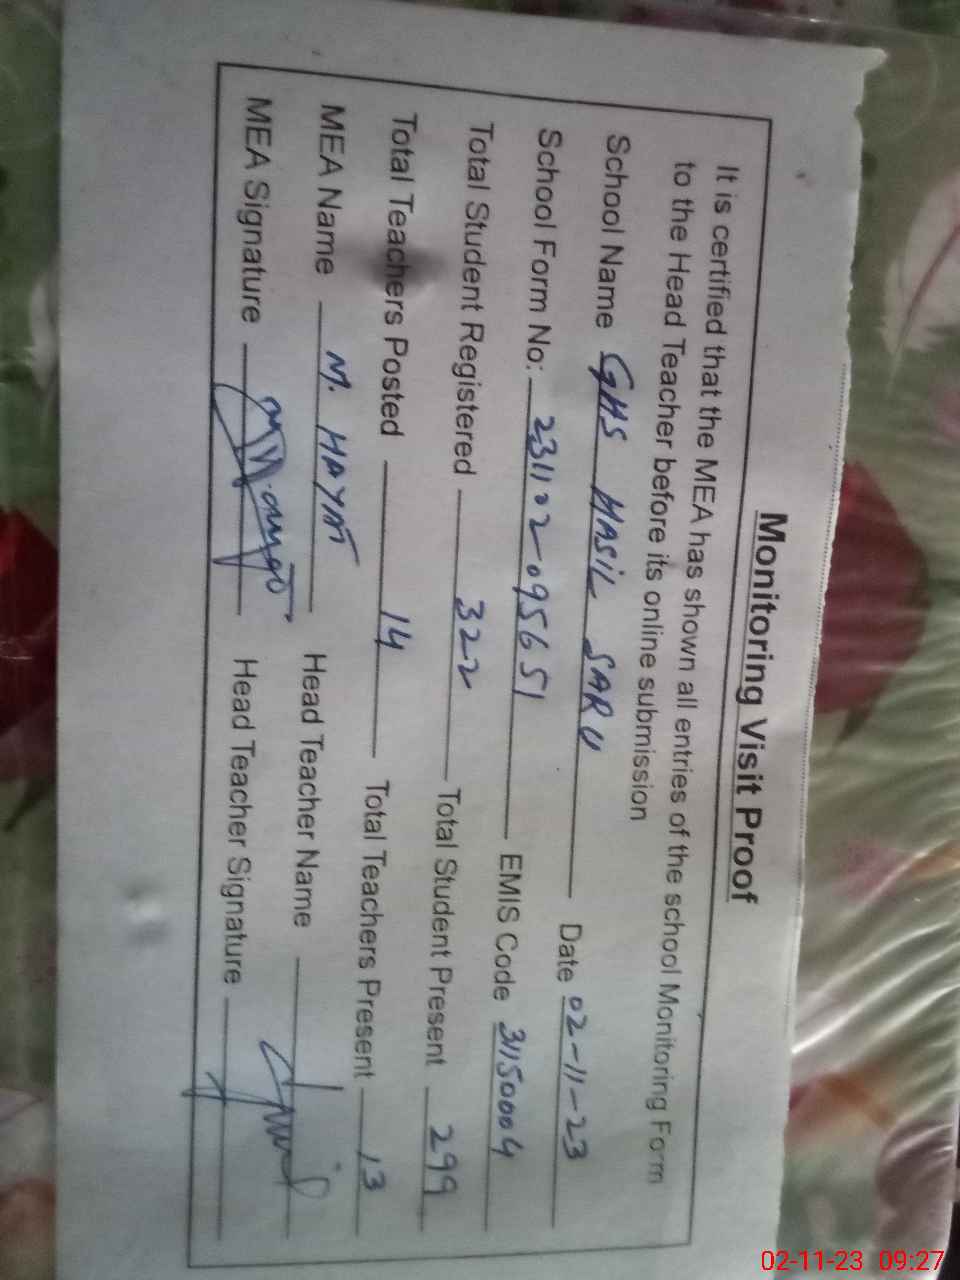 Monitoring Visit Proof
It is certified that the MEA has shown all entries of the school Monitoring Form
to the Head Teacher before its online submission
School Name GHS HASIL SARU Date 02-11-23
School Form No: 231102-095651 EMIS Code 31150004
Total Student Registered 322 Total Student Present 299
Total Teachers Posted 14 Total Teachers Present 13
MEA Name M. HAYAT Head Teacher Name
MEA Signature Head Teacher Signature
02-11-23 09:27